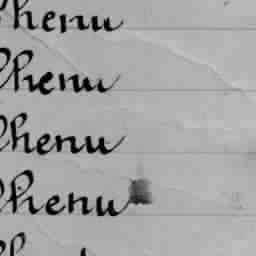 Chenu
Chenu
Chenu
Chenu